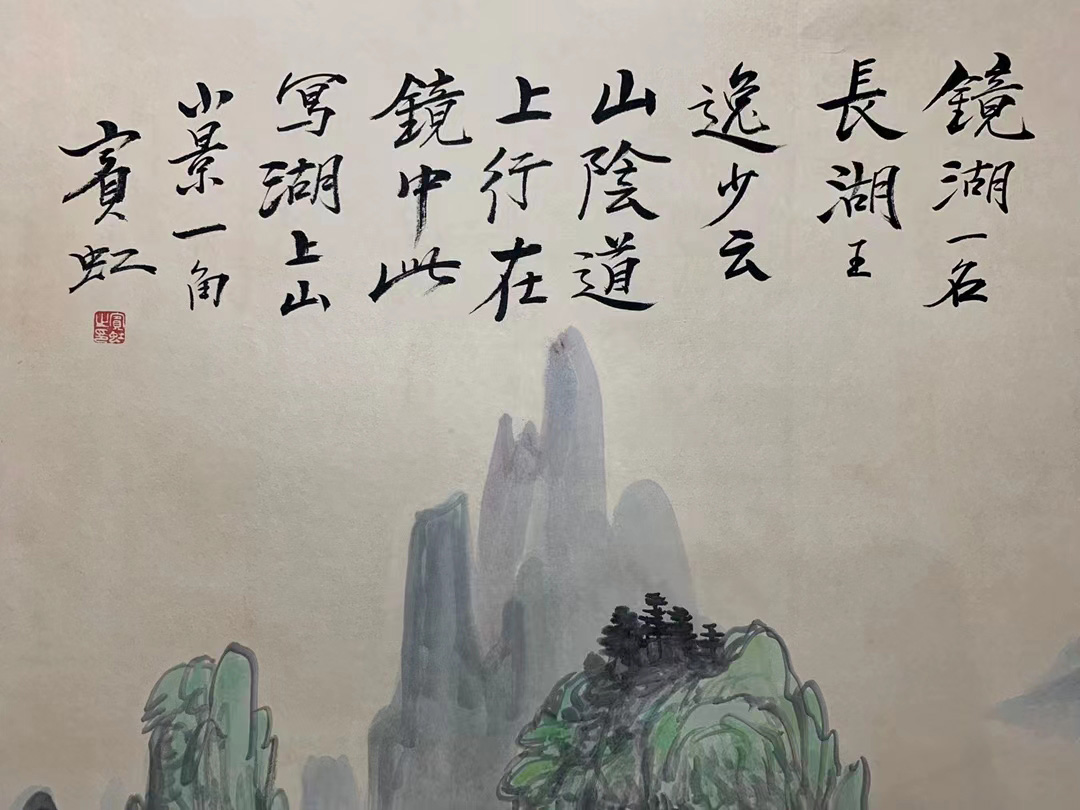 鏡湖一名
長湖王
逸少云
山陰道
上行在
鏡中此
寫湖上山
小景一角
賓虹
賓虹之印